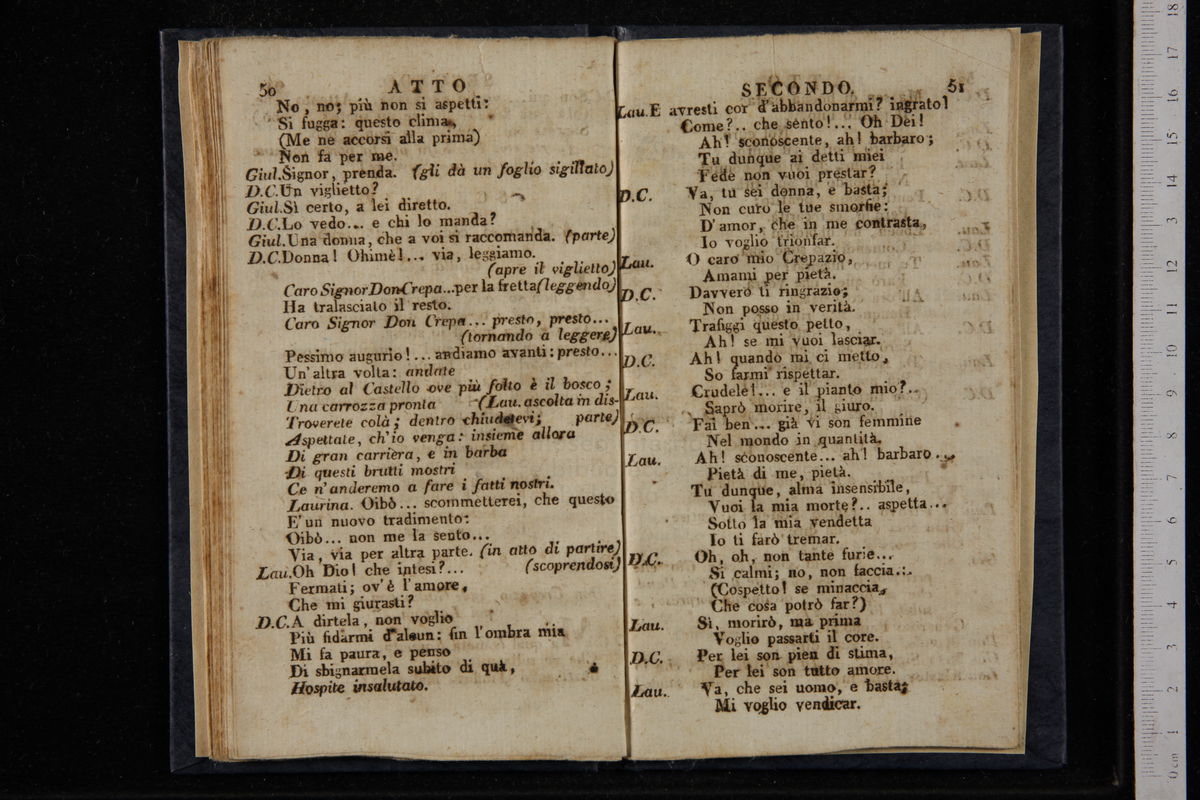 50 ATTO
No, no; più non si aspetti:
Si fugga: questo clima,
(Me ne accorsi alla prima)
Non fa per me.
Giul. Signor, prenda. (gli dà un foglio sigillato)
D.C. Un viglietto?
Giul. Sì certo, a lei diretto.
D.C. Lo vedo... e chi lo manda?
Giul. Una donna, che a voi si raccomanda. (parte)
D.C. Donna! Ohimè!... via, leggiamo.
(apre il viglietto)
Caro Signor Don Crepa... per la fretta (leggendo)
Ha tralasciato il resto.
Caro Signor Don Crepa... presto, presto...
(tornando a leggere)
Pessimo augurio!... andiamo avanti: presto...
Un' altra volta: andate
Dietro al Castello ove più folto è il bosco;
Una carrozza pronta (Lau. ascolta in dis-
Troverete colà; dentro chiudetevi; parte)
Aspettate, ch'io venga: insieme allora
Di gran carriera, e in barba
Di questi brutti mostri
Ce n'anderemo a fare i fatti nostri.
Laurina. Oibò... scommetterei, che questo
E' un nuovo tradimento:
Oibò... non me la sento...
Via, via per altra parte. (in atto di partire)
Lau. Oh Dio! che intesi?... (scoprendosi)
Fermati; ov'è l'amore,
Che mi giurasti?
D.C. A dirtela, non voglio
Più fidarmi d'alcun: fin l'ombra mia
Mi fa paura, e penso
Di sbignarmela subito di quà,
Hospite insalutato.
SECONDO. 51
Lau. E avresti cor d'abbandonarmi? ingrato!
Come?.. che sento!... Oh Dei!
Ah! sconoscente, ah! barbaro;
Tu dunque ai detti miei
Fede non vuoi prestar?
D.C. Va, tu sei donna, e basta;
Non curo le tue smorfie:
D'amor, che in me contrasta,
Io voglio trionfar.
Lau. O caro mio Crepazio,
Amami per pietà.
D.C. Davvero ti ringrazio;
Non posso in verità.
Lau. Trafiggi questo petto,
Ah! se mi vuoi lasciar.
D.C. Ah! quando mi ci metto,
So farmi rispettar.
Lau. Crudele!... e il pianto mio?..
Saprò morire, il giuro.
D.C. Fai ben... già vi son femmine
Nel mondo in quantità.
Lau. Ah! sconoscente... ah! barbaro...
Pietà di me, pietà.
Tu dunque, alma insensibile,
Vuoi la mia morte?.. aspetta...
Sotto la mia vendetta
Io ti farò tremar.
D.C. Oh, oh, non tante furie...
Si calmi; no, non faccia...
(Cospetto! se minaccia,
Che cosa potrò far?)
Lau. Sì, morirò, ma prima
Voglio passarti il core.
D.C. Per lei son pien di stima,
Per lei son tutto amore.
Lau. Va, che sei uomo, e basta;
Mi voglio vendicar.
0 cm 1 2 3 4 5 6 7 8 9 10 11 12 13 14 15 16 17 18